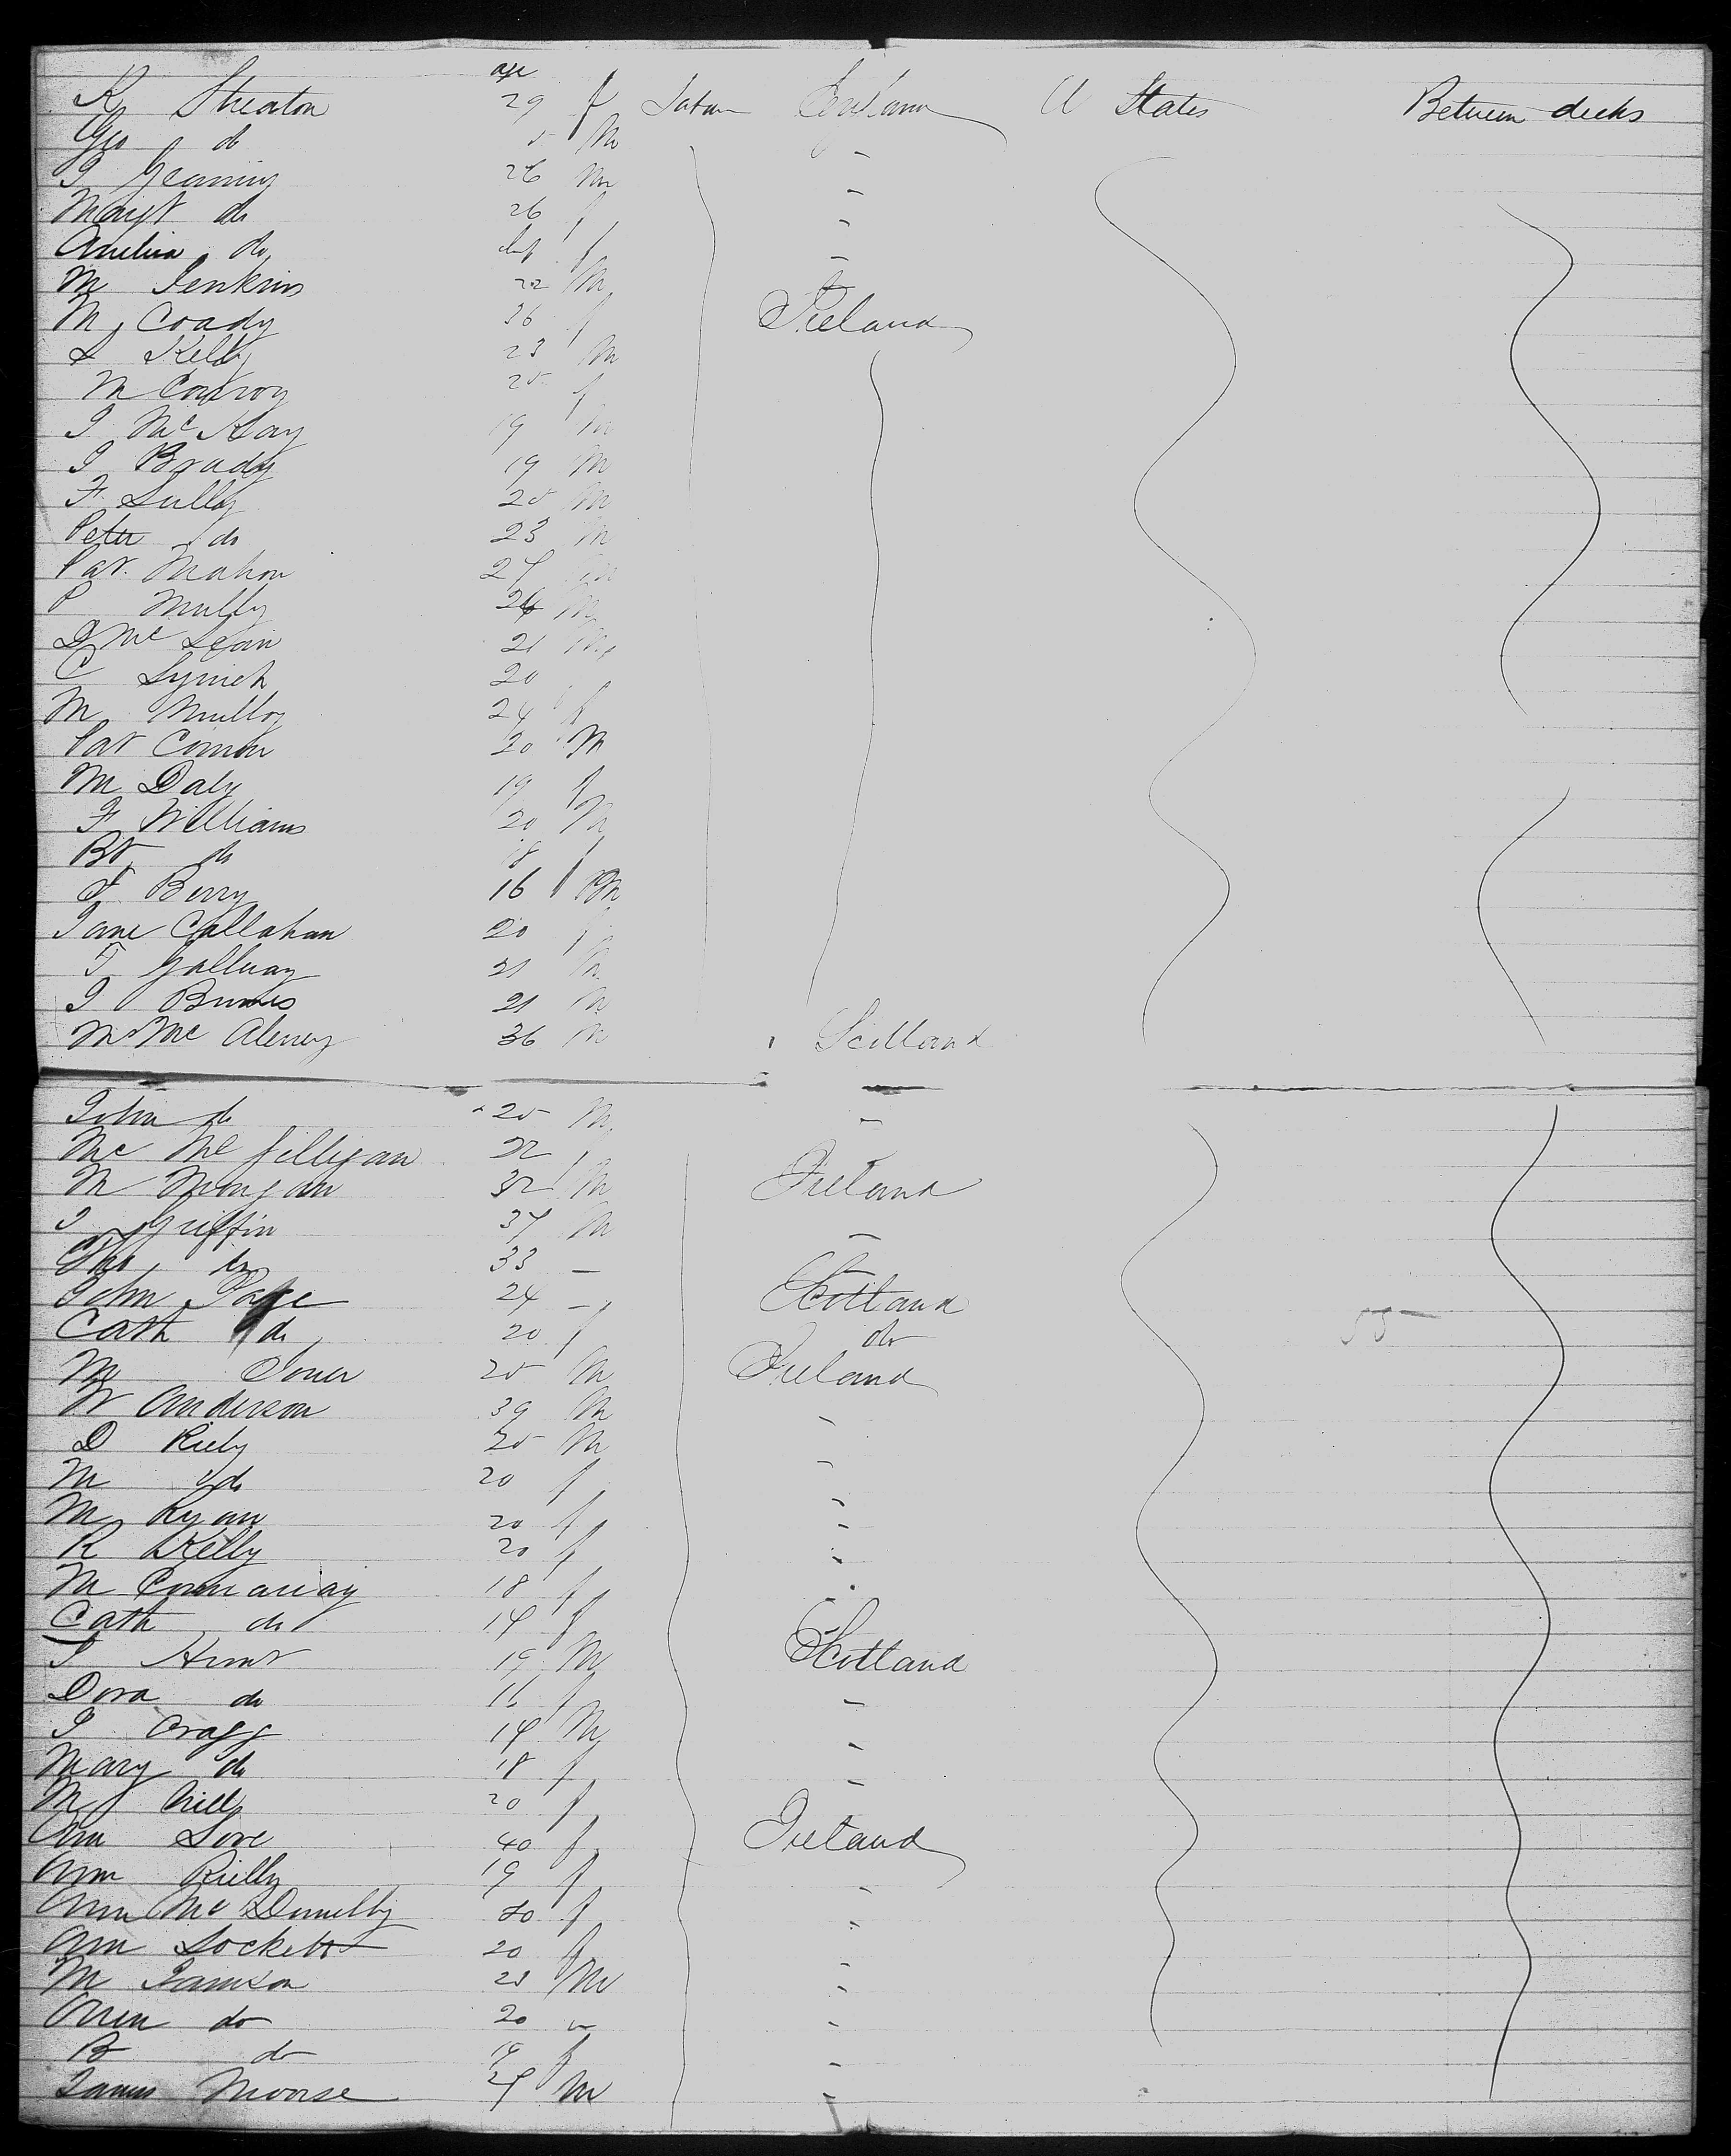 age
K Sheaton 29 f Labor England U States Between decks
Geo do 5 M
J Jeaming 26 M
Magt do 26 f
Amelia do inf f
M Jenkins 22 M
M Coady 36 f Ireland
L Kelly 23 M
M Conroy 25 f
J McKay 19 M
J Brady 19 M
F Lully 25 M
Peter do 23 M
Pat Mahon 24 M
P Mully 24 M
D McLean 21 M
C Lynich 20
M Mulloy 24 f
Pat Connor 20 M
M Daly 19 f
F Williams 20 M
Bt do 18 f
T Berry 16 M
Jane Callahan 20 f
T Galluay 21 M
J Burns 21 M
M McAleney 36 M Scotland
John do 25 M
Mc Mc Gilligan 32
M Mongan 32 M Ireland
J Griffin 34 M
Tho do 33
John Page 24 Scotland
Cath do 20 f do
M Toner 25 M Ireland
W Anderson 39 M
D Riely 25 M
M do 20 f
M Ryan 20 f
R Kelly 20 f
M Connaway 18 f
Cath do 14 f
J Hunt 19 M Scotland
Dora do 16 f
J Cragg 14 M
Mary do 18 f
M Neill 20 f
Ann Love 40 f Ireland
Ann Rielly 19 f
Ann McDonnelly 20 f
Ann Lockett 20 f
M Jamison 23 M
Owen do 20
B do 18 f
James Moorse 24 M
55